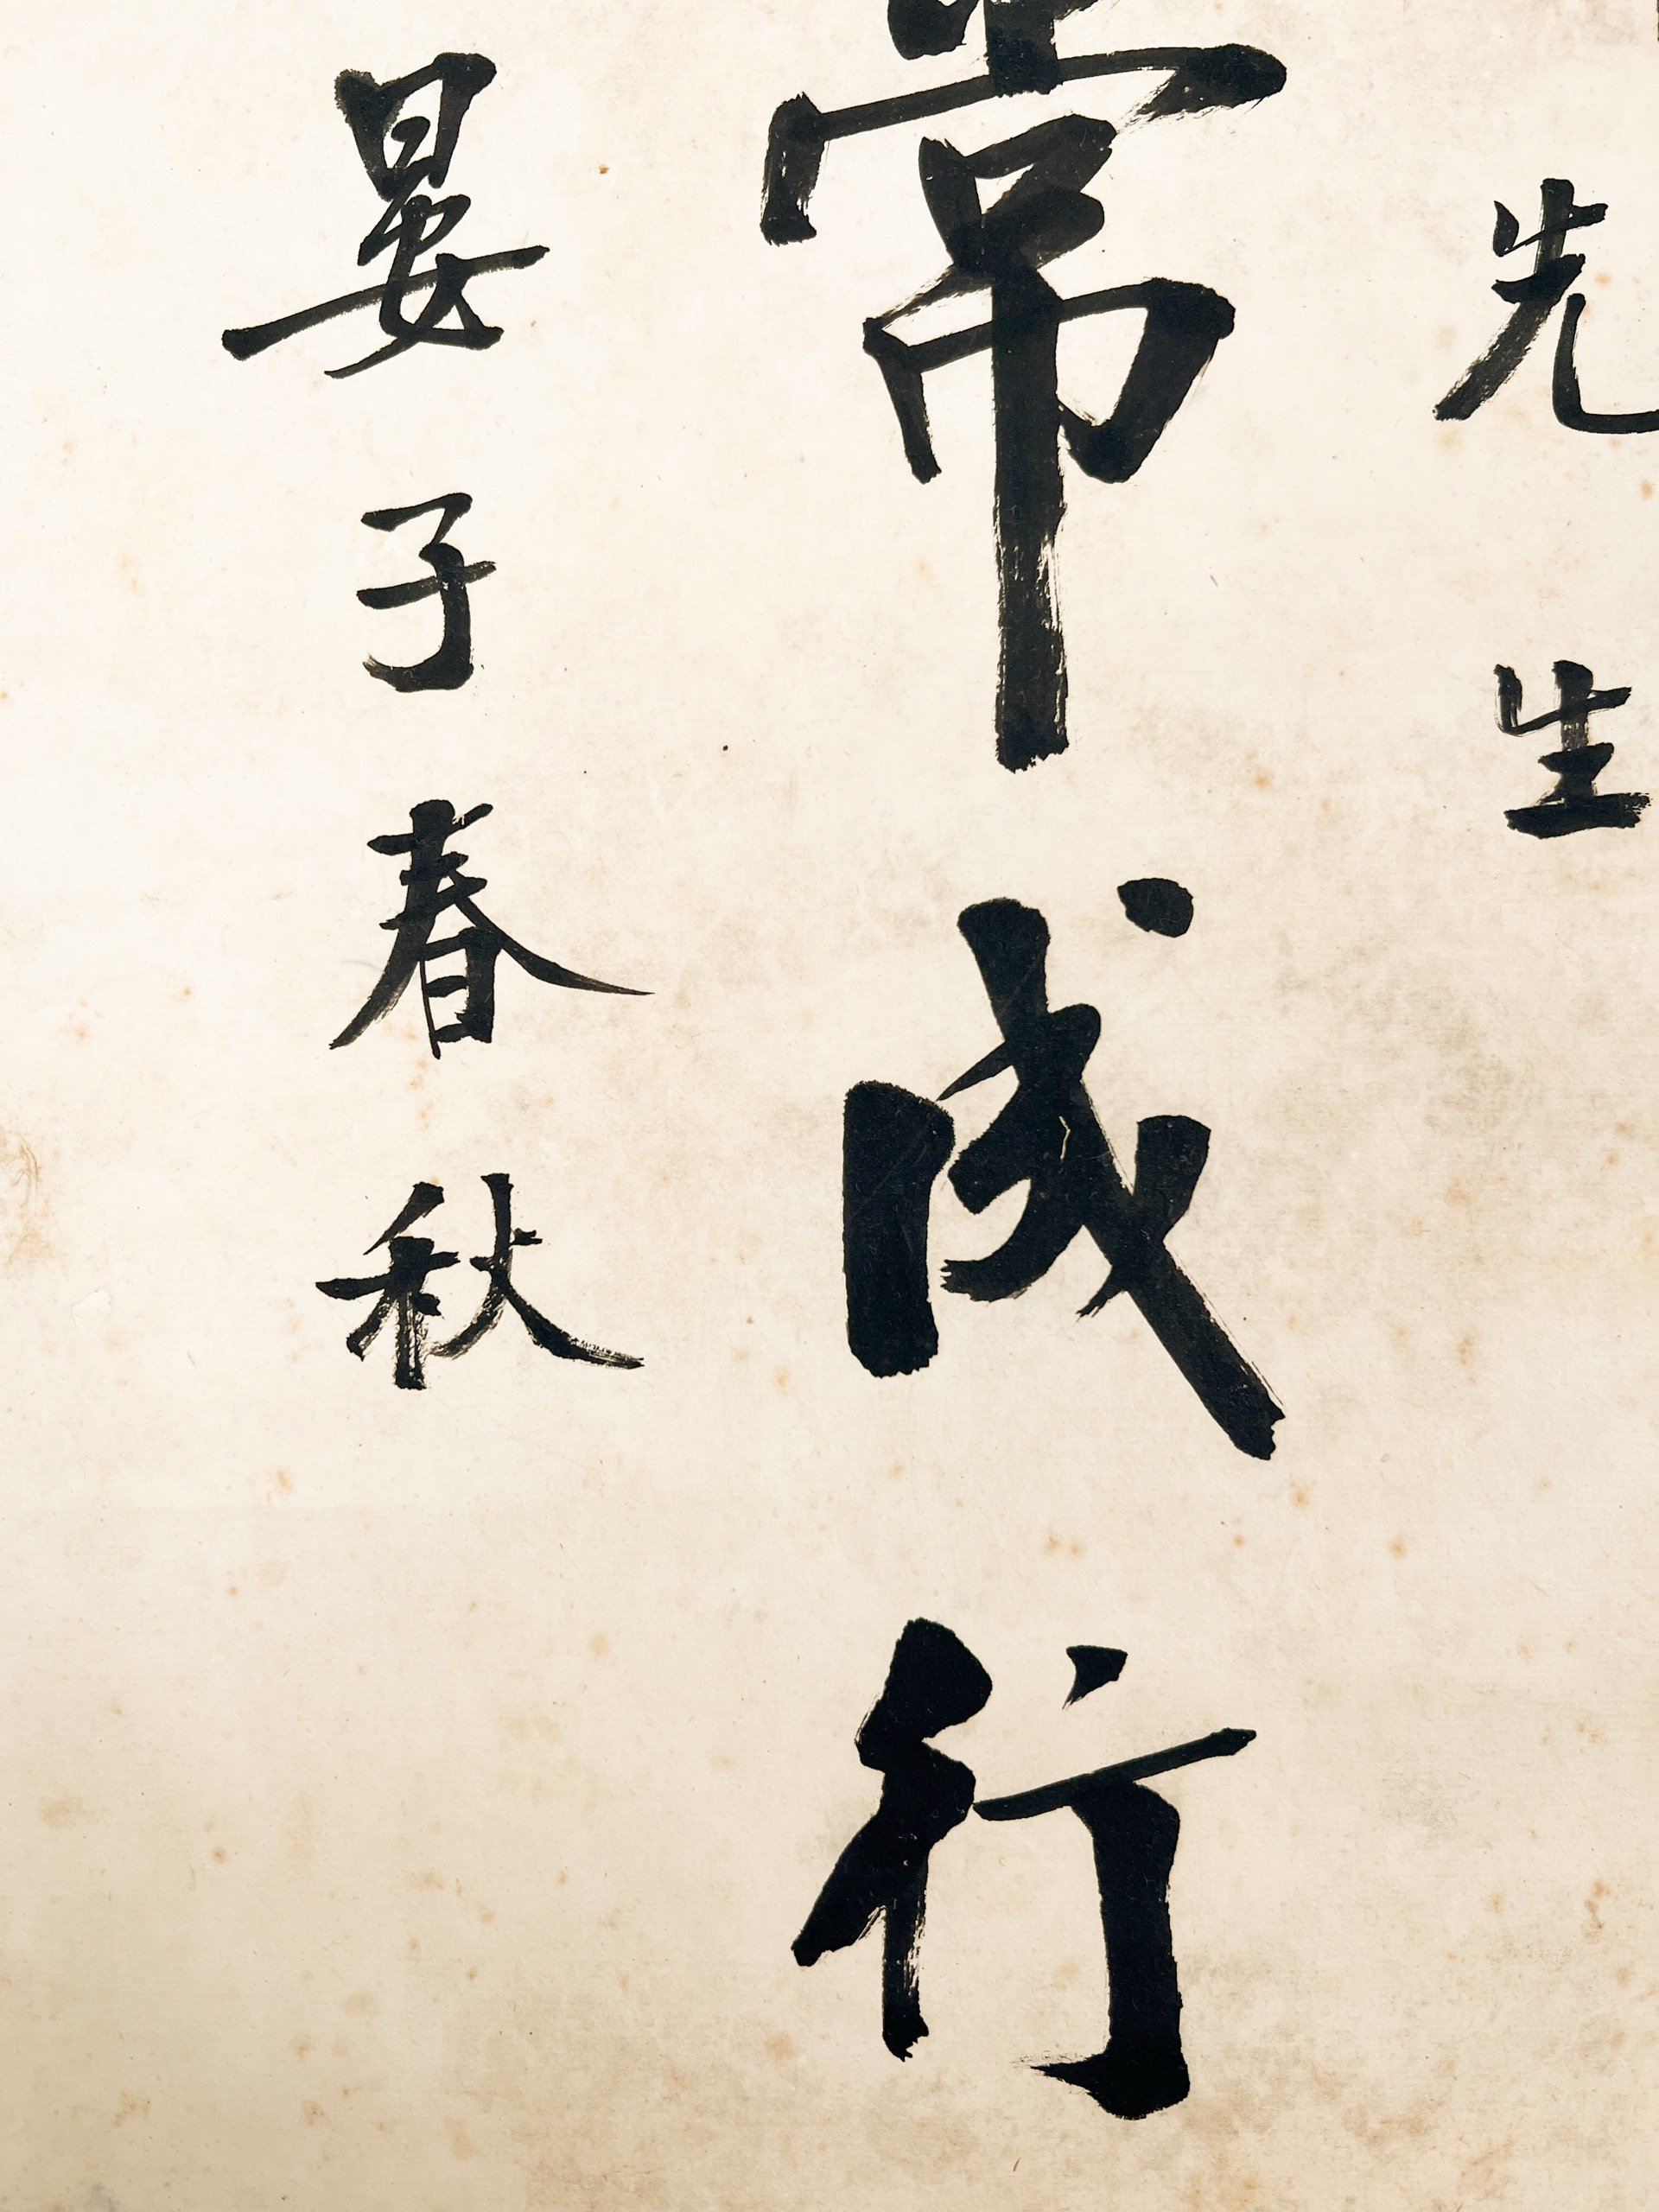 先生
常成行
晏子春秋